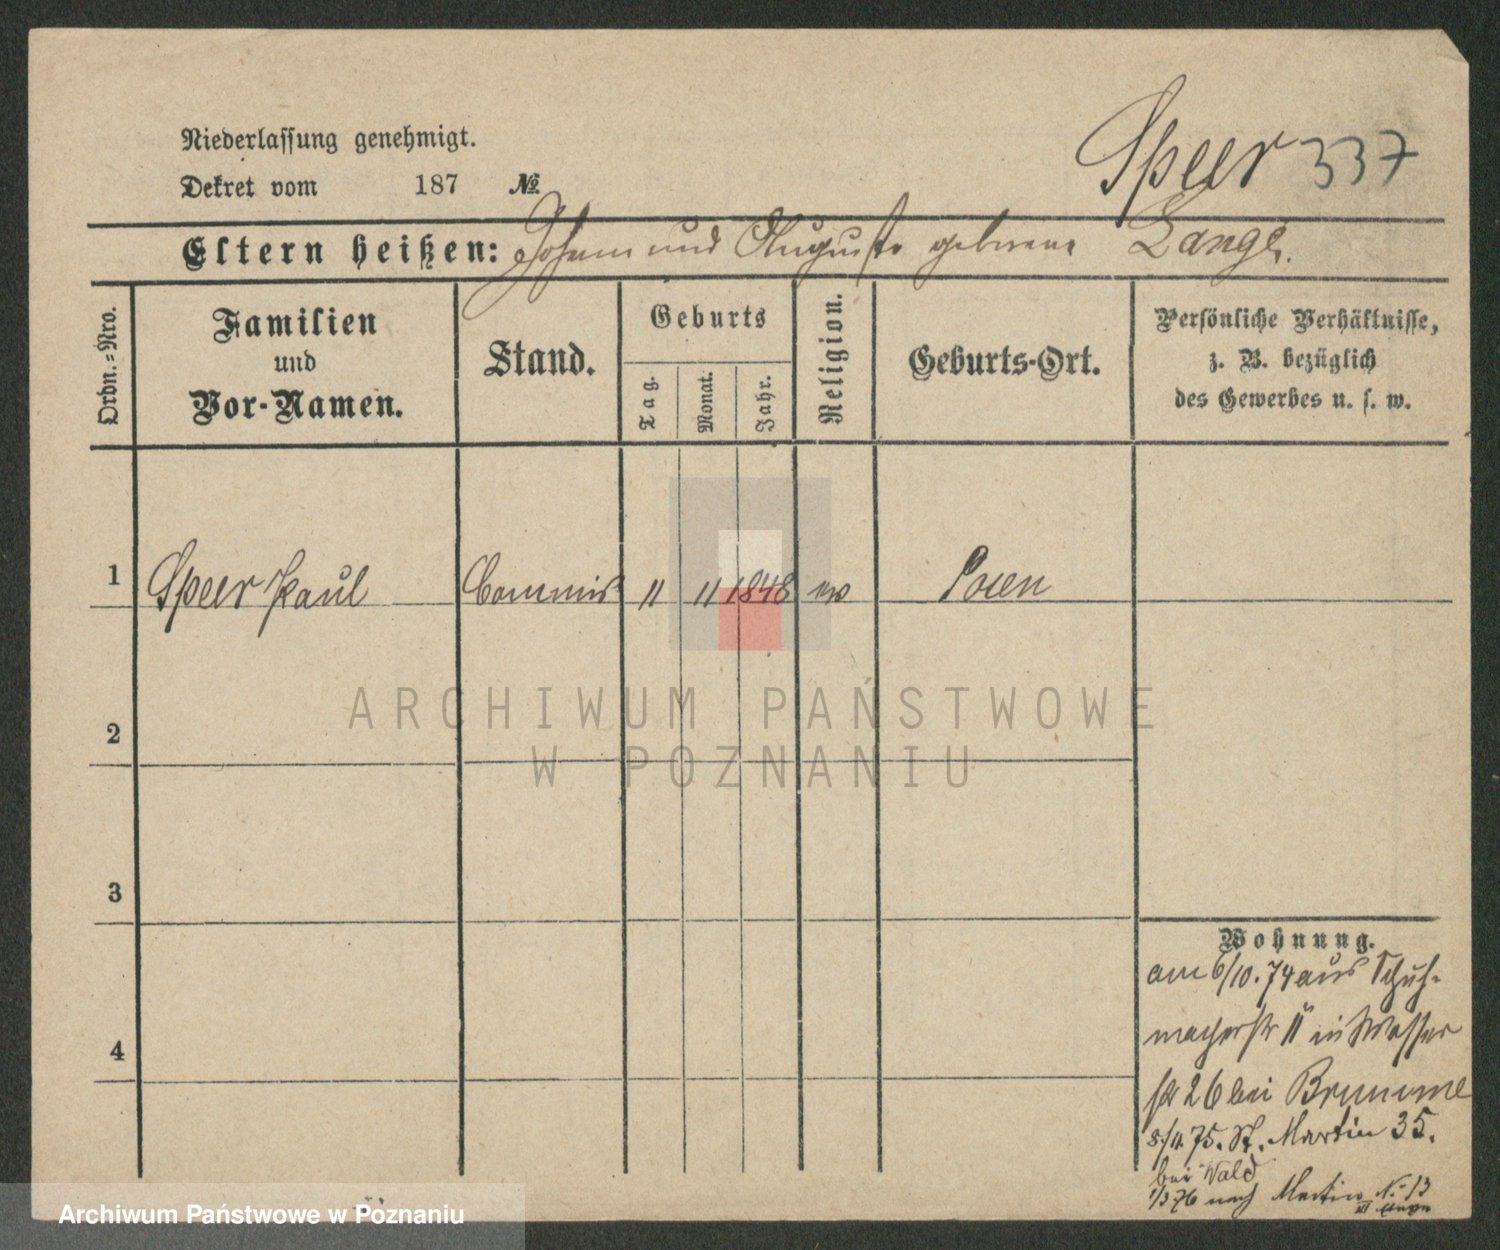 Speer 337
Niederlassung genehmigt.
Dekret vom 187 №
Eltern heißen: Johann und Auguste geborene Lange.
Ordn.=Nro.
Familien
und
Vor-Namen.
Stand.
Geburts
Tag.
Monat.
Jahr.
Religion.
Geburts-Ort.
Persönliche Verhältnisse,
z. B. bezüglich
des Gewerbes u. s. w.
1 Speer Paul Commis 11 11 1848 ev Posen
2
3
4
Wohnung.
am 6/10.74 aus Schuh-
macherstr 11 in Wasser
str 26 bei Brumme
8/4 75. St. Martin 35.
bei Wald
1/3 76 nach Martin N. 13
ARCHIWUM PAŃSTWOWE
W POZNANIU
Archiwum Państwowe w Poznaniu